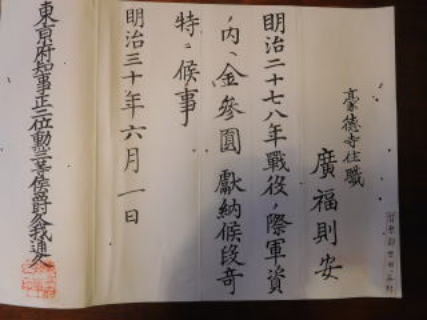 豪德寺住職
廣福則安
明治二十七八年戰役ノ際軍資
ノ内ヘ金參圓獻納候段奇
特ニ候事
明治三十年六月一日
東京府知事正三位勳三等侯爵久我通久